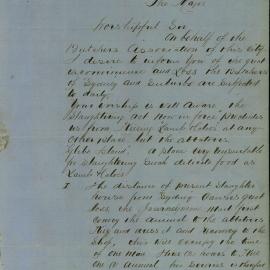 The Mayor
Worshipful Sir
On behalf of the
Butchers Association of this City
I desire to inform you of the great
inconvenience and Loss the Butchers
of Sydney and Suburbs are subjected
to daily.
Your Worship is well aware the
Slaughtering Act now in force
us from Killing Lamb & Calves at any
other place but the Abattoirs
Glebe Island, a place very unsuitable
for Slaughtering Such delicate food as
Lamb & Calves
1 The distance of present Slaughter
house from Sydney Causes great
loss, the Journeyman must first
Convey the animal to the Abattoirs
Kill and dress it and Convey to the
Shop, this will occupy the time
of one Man
One Animal, his